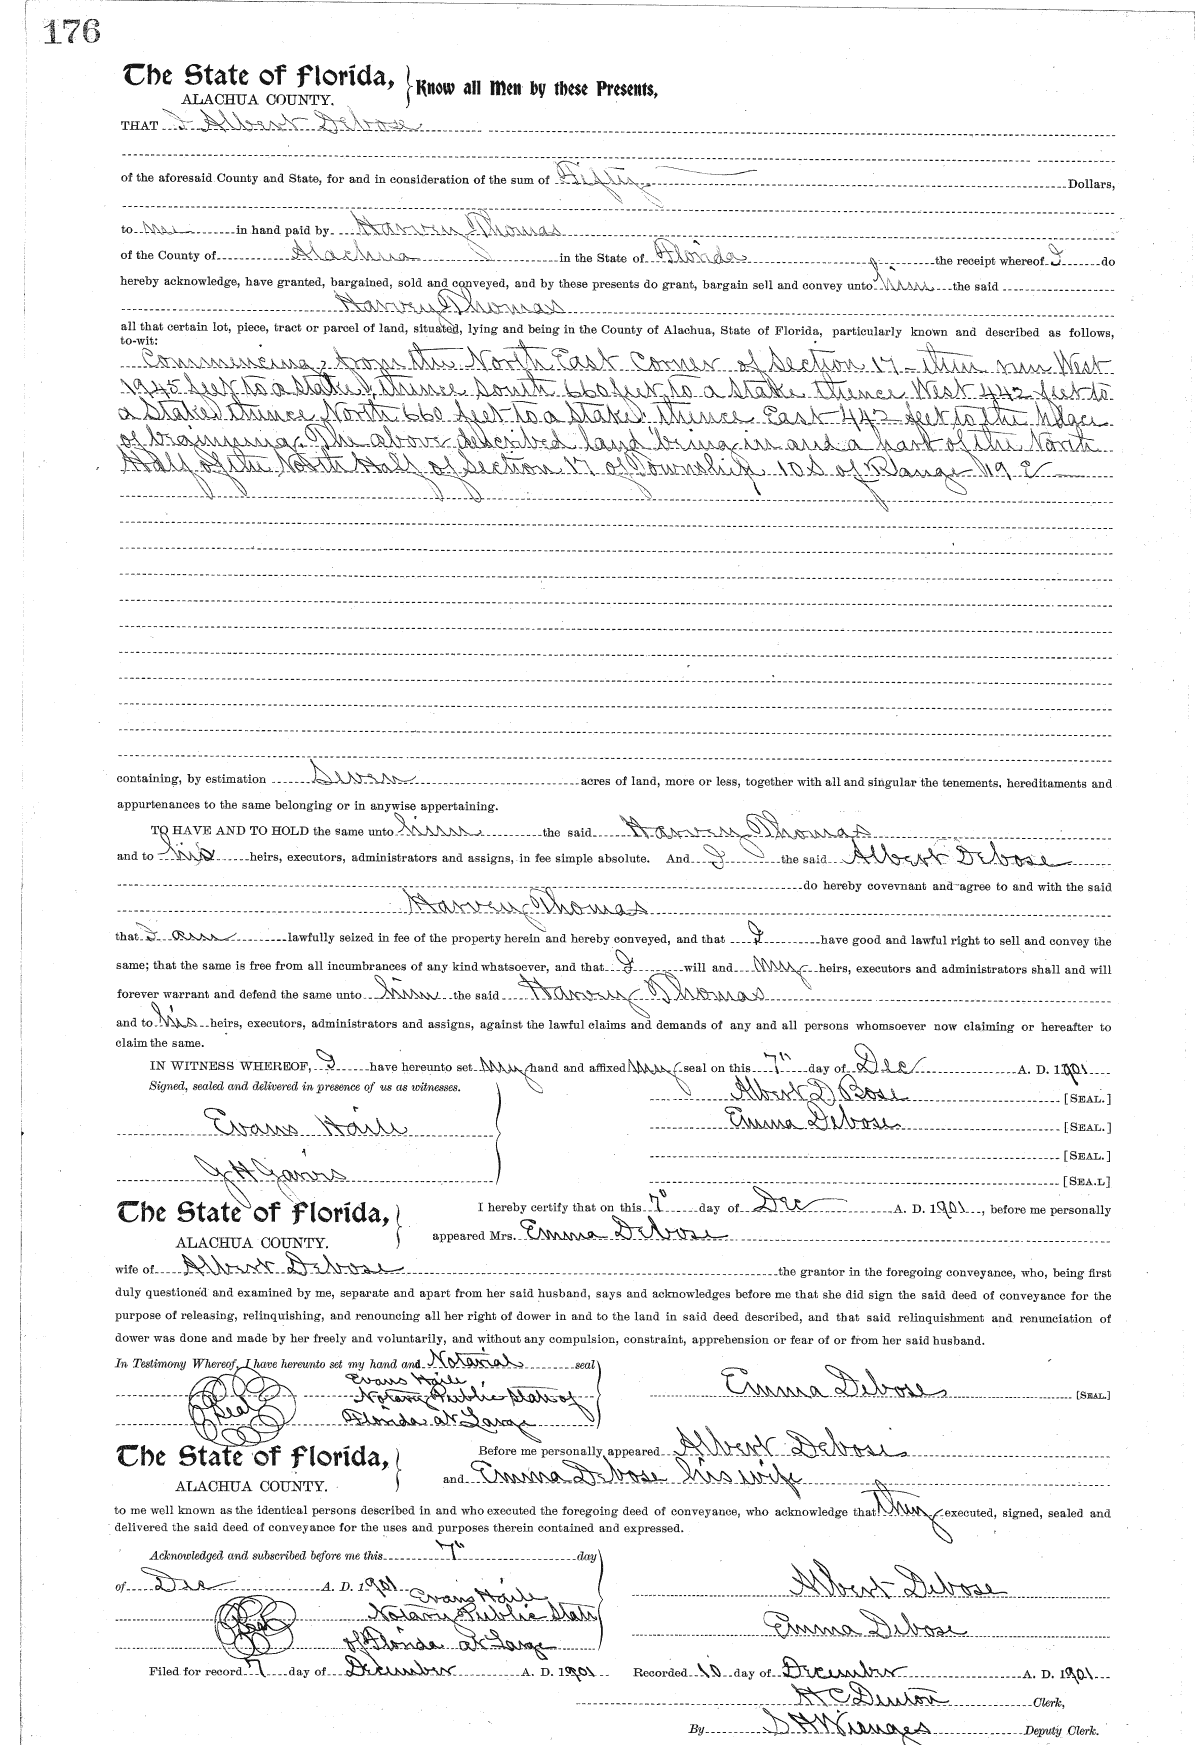 176
The State of Florida, Know all Men by these Presents,
ALACHUA COUNTY.
THAT I Albert Debose
of the aforesaid County and State, for and in consideration of the sum of Fifty Dollars,
to me in hand paid by Harvey Thomas
of the County of Alachua in the State of Florida the receipt whereof I do
hereby acknowledge, have granted, bargained, sold and conveyed, and by these presents do grant, bargain sell and convey unto him the said
Harvey Thomas
all that certain lot, piece, tract or parcel of land, situated, lying and being in the County of Alachua, State of Florida, particularly known and described as follows,
to-wit:
Commencing from the North East Corner of Section 17 - then run West
1945 feet to a Stake, thence South 660 feet to a Stake thence West 442 feet to
a Stake thence North 660 feet to a Stake thence East 442 feet to the
of beginning. The above described land being in and a part of the North
Half of the North Half of Section 17 of Township 10 S of Range 19 E
containing, by estimation Seven acres of land, more or less, together with all and singular the tenements, hereditaments and
appurtenances to the same belonging or in anywise appertaining.
TO HAVE AND TO HOLD the same unto him the said Harvey Thomas
and to his heirs, executors, administrators and assigns, in fee simple absolute. And I the said Albert Debose
do hereby covevnant and agree to and with the said
Harvey Thomas
that I am lawfully seized in fee of the property herein and hereby conveyed, and that I have good and lawful right to sell and convey the
same; that the same is free from all incumbrances of any kind whatsoever, and that I will and my heirs, executors and administrators shall and will
forever warrant and defend the same unto him the said Harvey Thomas
and to his heirs, executors, administrators and assigns, against the lawful claims and demands of any and all persons whomsoever now claiming or hereafter to
claim the same.
IN WITNESS WHEREOF, I have hereunto set my hand and affixed my seal on this 7" day of Dec A. D. 1901
Signed, sealed and delivered in presence of us as witnesses. Albert D Bose [SEAL.]
Evans Haile Emma Debose [SEAL.]
[SEAL.]
G H [SEA.L]
The State of Florida, I hereby certify that on this 7" day of Dec A. D. 1901, before me personally
ALACHUA COUNTY. appeared Mrs. Emma Debose
wife of Albert Debose the grantor in the foregoing conveyance, who, being first
duly questioned and examined by me, separate and apart from her said husband, says and acknowledges before me that she did sign the said deed of conveyance for the
purpose of releasing, relinquishing, and renouncing all her right of dower in and to the land in said deed described, and that said relinquishment and renunciation of
dower was done and made by her freely and voluntarily, and without any compulsion, constraint, apprehension or fear of or from her said husband.
In Testimony Whereof, I have hereunto set my hand and Notarial seal
Evans Haile Emma Debose [SEAL.]
Seal Notary Public State of
Florida at Large
The State of Florida, Before me personally appeared Albert Debose
ALACHUA COUNTY. and Emma Debose his wife
to me well known as the identical persons described in and who executed the foregoing deed of conveyance, who acknowledge that they executed, signed, sealed and
delivered the said deed of conveyance for the uses and purposes therein contained and expressed.
Acknowledged and subscribed before me this 7" day
of Dec A. D. 1901 Albert Debose
Evans Haile
Seal Notary Public State Emma Debose
of Florida at Large
Filed for record 7 day of December A. D. 1901 Recorded 10 day of December A. D. 1901
H C Denton Clerk,
By S H Wienges Deputy Clerk.